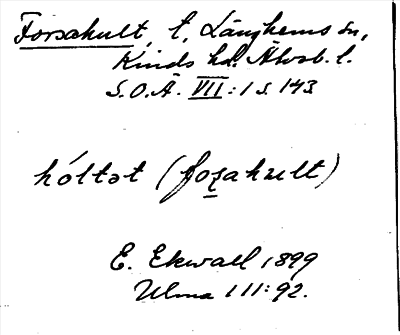 Forsahult, t. Länghems sn,
Kinds hd. Älvsb. l.
S.O.Ä. VII:1 s. 143
hóltət (foʂahult)
E. Ekwall 1899
Ulma 111:92.